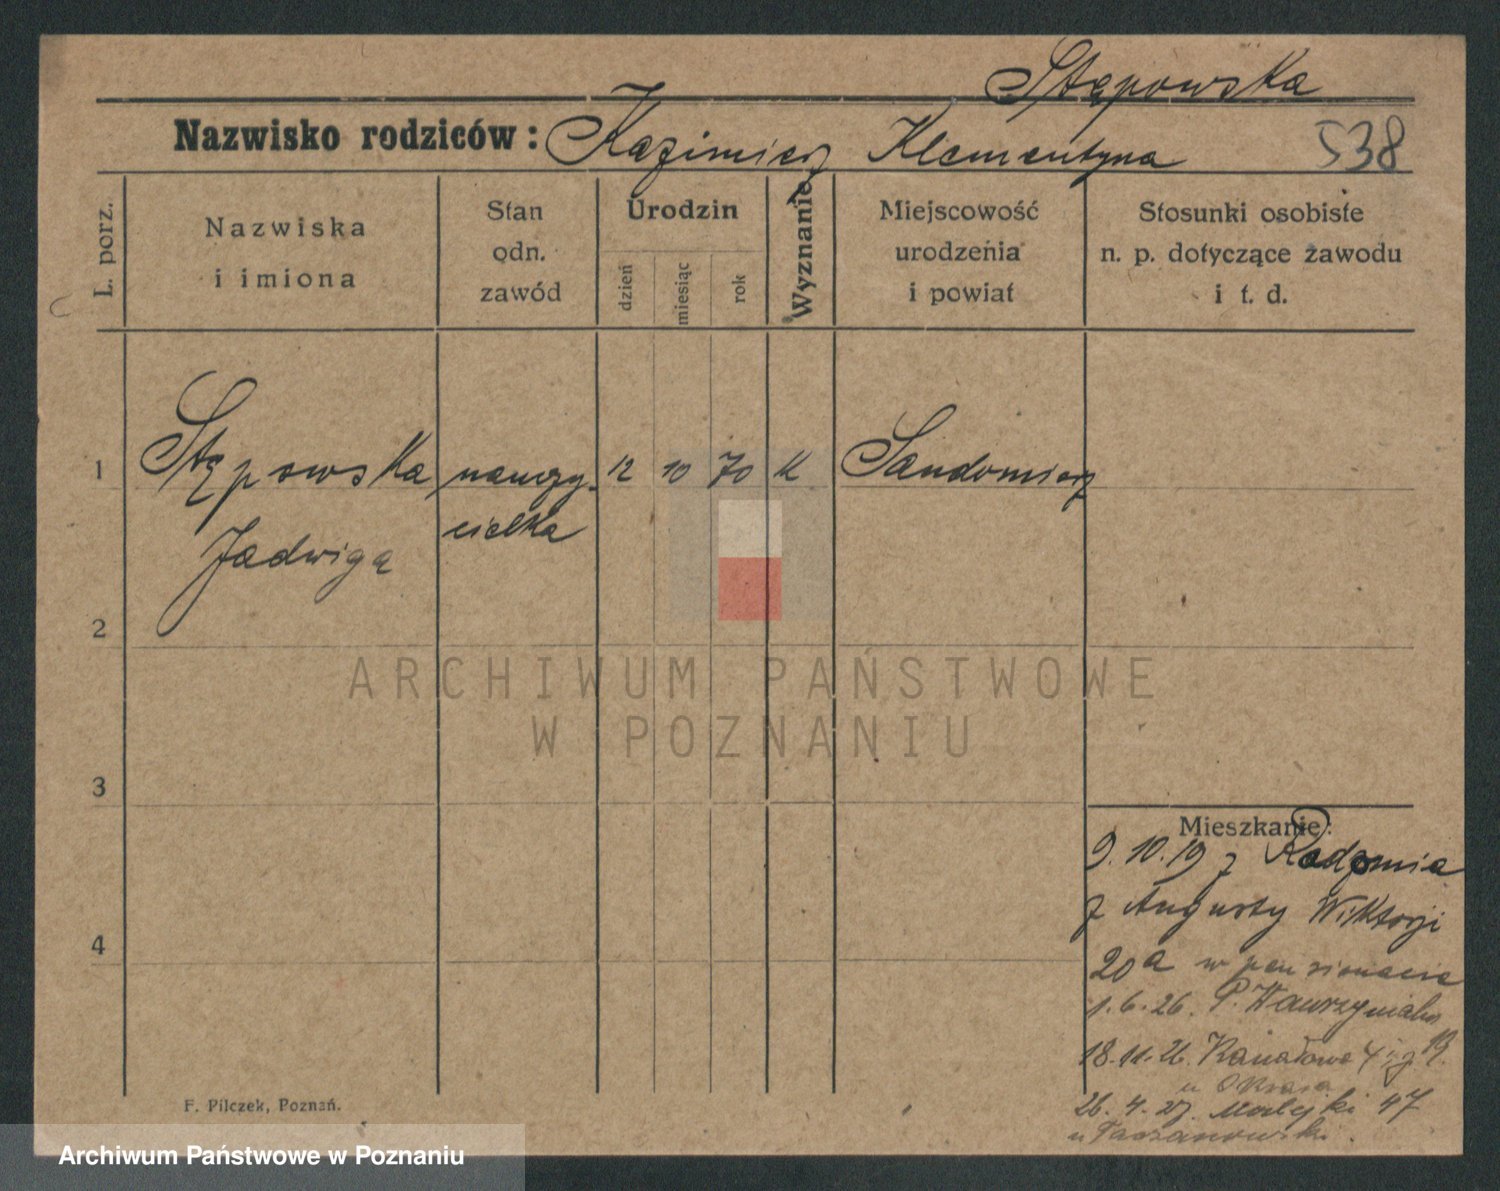 Stępowska
Nazwisko rodziców: Kazimierz Klementyna 538
L. porz.
Nazwiska
i imiona
Stan
odn.
zawód
Urodzin
dzień
miesiąc
rok
Wyznanie
Miejscowość
urodzenia
i powiat
Stosunki osobiste
n. p. dotyczące zawodu
i t. d.
1 Stępowska nauczy- 12 10 70 K Sandomierz
cielka
Jadwiga
2
ARCHIWUM PAŃSTWOWE
W POZNANIU
3
Mieszkanie:
9.10.19 z Radomia
z Augusty Wiktorji
4
20a w pensionacie
1.6.26. P. Wawrzyniaka
18.11.26. Kanałowa 4
26.4.27. Matejki 47
u Taczanowski.
F. Pilczek, Poznań.
Archiwum Państwowe w Poznaniu